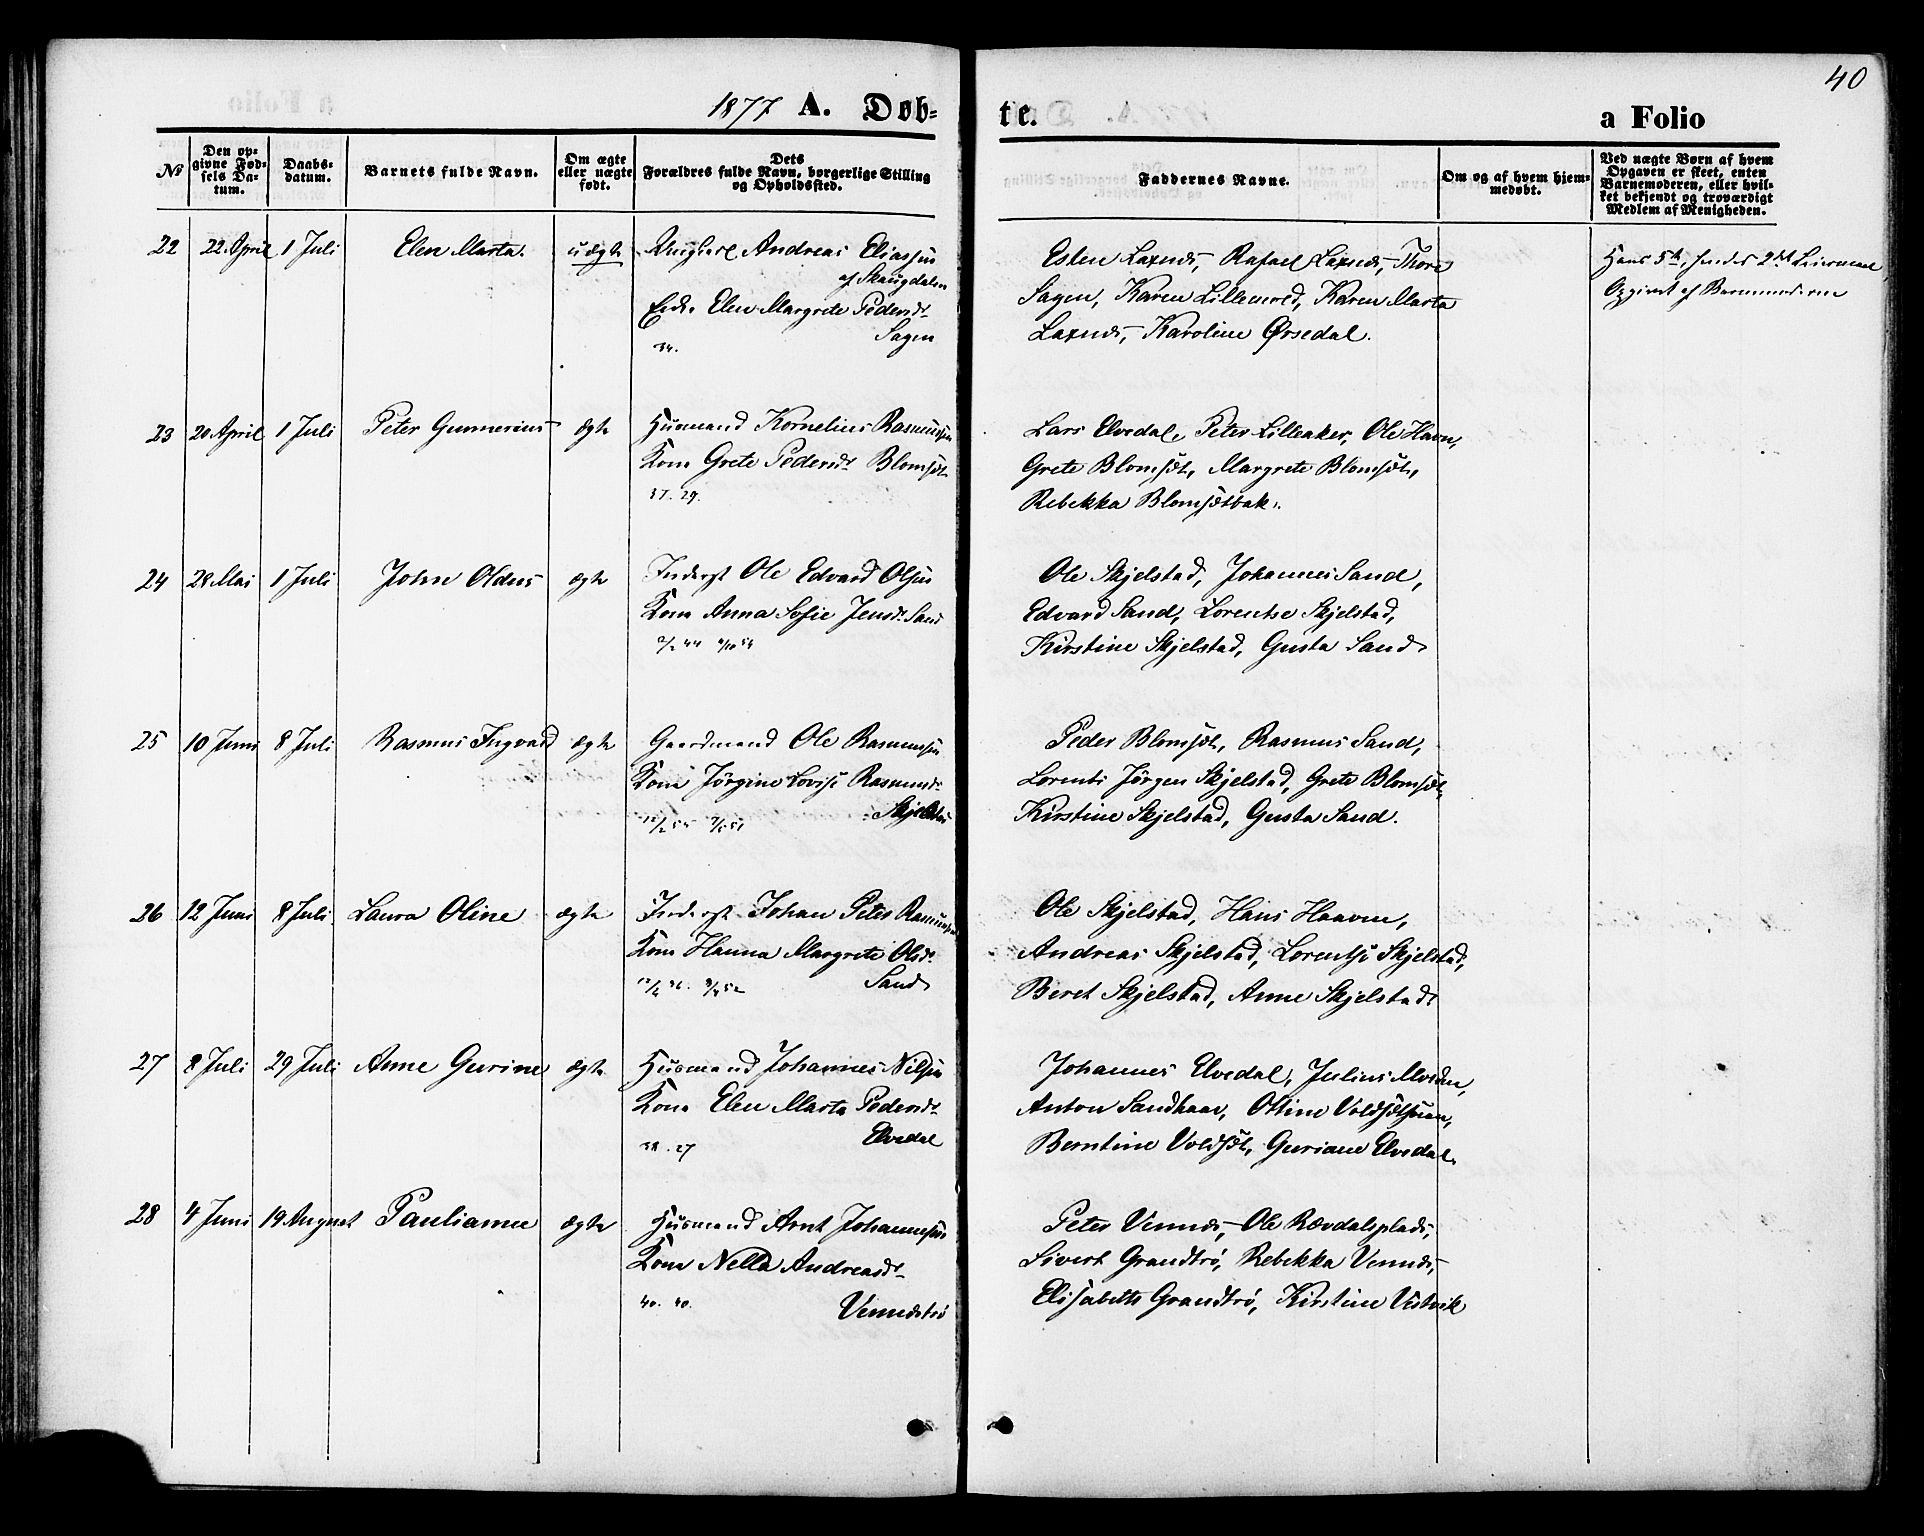 40
1877 A. Døb-
te.
a Folio
№
Den op-
givne Fød-
sels Da-
tum.
Daabs-
datum.
Barnets fulde Navn.
Om ægte
eller uægte
født.
Dets
Forældres fulde Navn, borgerlige Stilling
og Opholdssted.
Faddernes Navne.
Om og af hvem hjem-
medøbt.
Ved uægte Børn af hvem
Opgaven er skeet, enten
Barnemoderen, eller hvil-
ket bekjendt og troværdigt
Medlem af Menigheden.
22 22. April 1 Juli Elen Marta. uægte Ungkarl Andreas Eliassen
af Skaugdalen
Enke Elen Margrete Pedersdt.
Sagen
34.
Esten Laxnæs, Rafael Laxnæs, Thore
Sagen, Karen Lillemoed, Karen Marta
Laxnæs, Karoline Ørsedal.
Hans 5te, hendes 2det Leiermaal
Opgivet af Barnemoderen
23 20 April 1 Juli Peter Gunnerius ægte Husmand Kornelius Rasmussen
Kone Grete Pedersdt. Blomsæt
37. 29.
Lars Elvedal, Peter Lilleaker, Ole Havn,
Grete Blomsæt, Margrete Blomsæt,
Rebekka Blomsætbak.
24 28 Mai 1 Juli Johan Oldus ægte Inderst Ole Edvard Olsen
Kone Anna Sofie Jensdt. Sand
Ole Skjelstad, Johannes Sand,
Edvard Sand, Lorentse Skjelstad,
Kirstine Skjelstad, Gusta Sand
25 10 Juni 8 Juli Rasmus Ingvard ægte Gaardmand Ole Rasmussen
Kone Jørgine Lovise Rasmusdt.
Skjelstad
Peder Blomsæt, Rasmus Sand,
Lorents Jørgen Skjelstad, Grete Blomsæt,
Kirstine Skjelstad, Gusta Sand.
26 12 Juni 8 Juli Laura Oline ægte Inderst Johan Peter Rasmussen
Kone Hanna Margrete Olsdt.
Sand
Ole Skjelstad, Hans Haaven,
Andreas Skjelstad, Lorentse Skjelstad,
Beret Skjelstad, Anne Skjelstad
27 8 Juli 29 Juli Anne Gurine ægte Husmand Johannes Nilsen
Kone Elen Marta Pedersdt.
Elvedal
38. 27
Johannes Elvedal, Julius Moeden,
Anton Sandhaar, Oline
Berntine Voldsæt, Guriane Elvedal.
28 4 Juni 19 August Paulianne ægte Husmand Arnt Johannessen
Kone Nella Andreasdt.
Vennestrø
40. 40.
Peter Vennæs, Ole Rævdalsplads,
Sivert Grandtrø, Rebekka Vennæs,
Elisabeth Grandtrø, Kirstine Vestvik